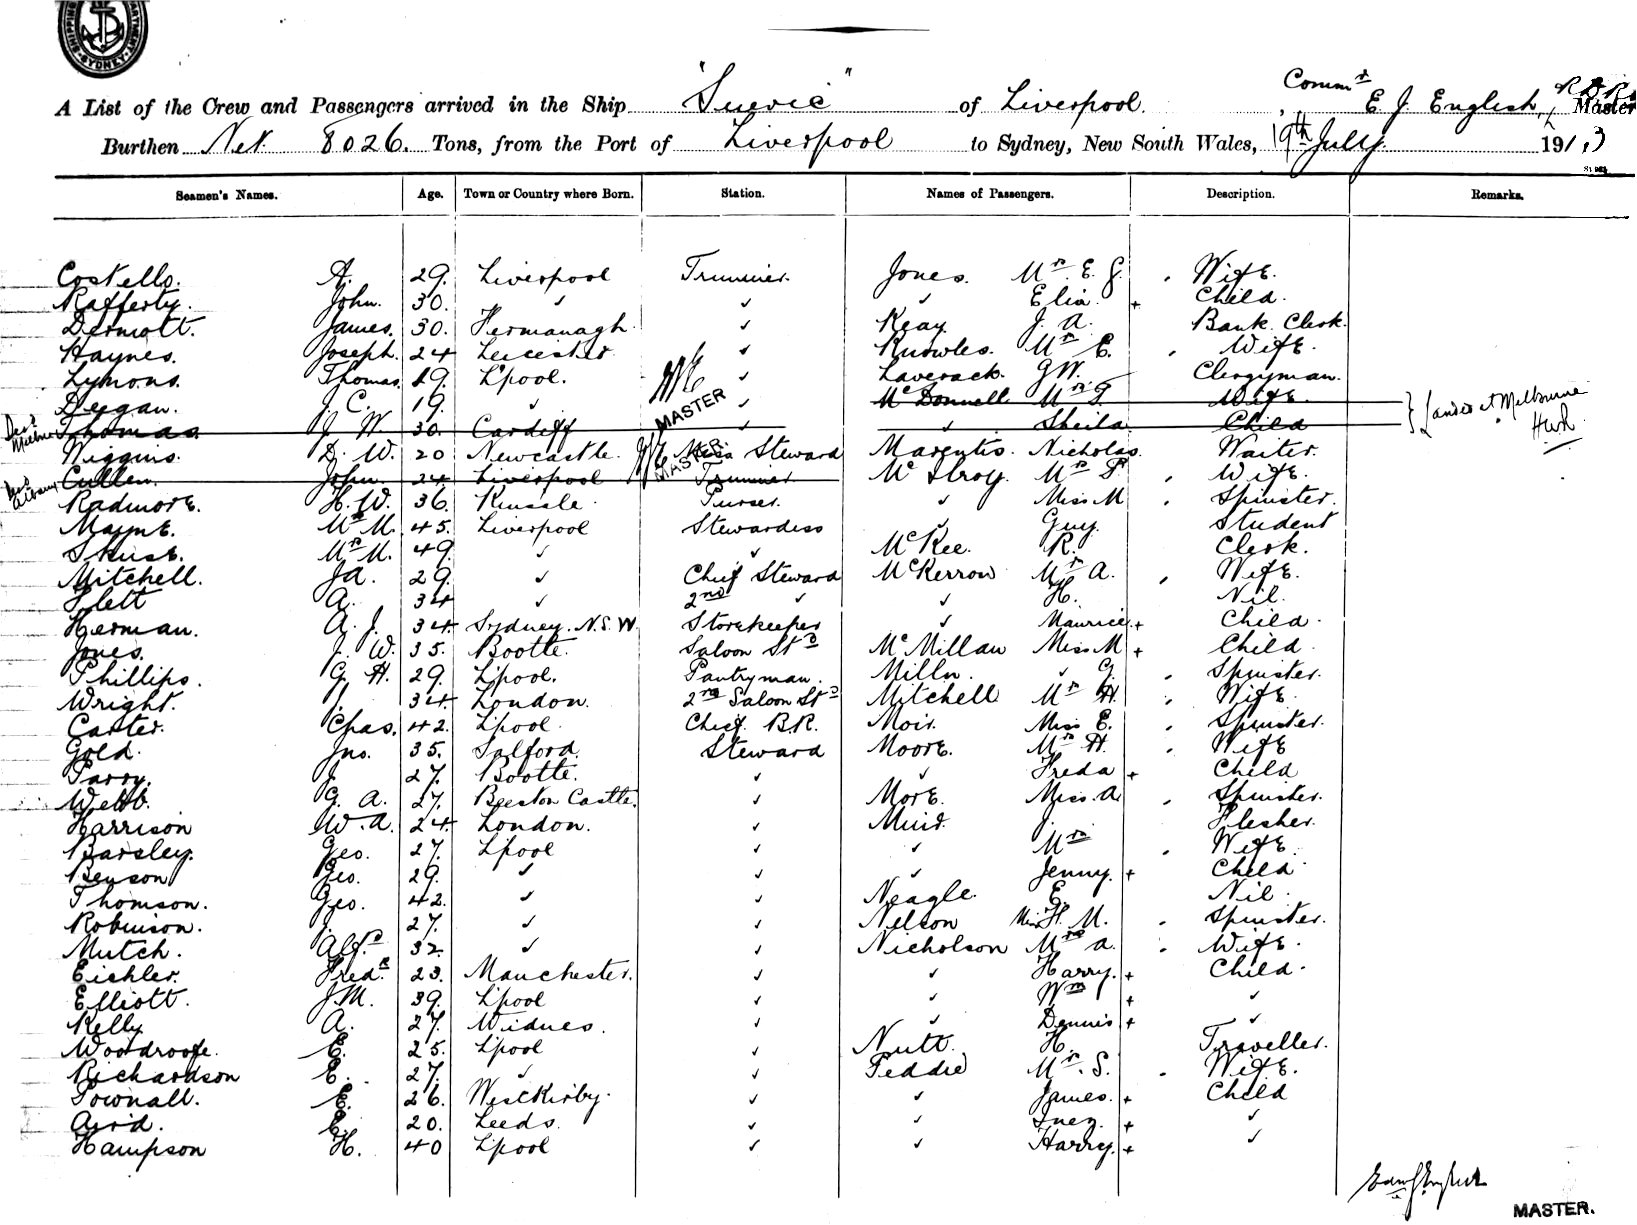 SHIPPING DEPARTMENT SYDNEY
A List of the Crew and Passengers arrived in the Ship "Suevic" of Liverpool. Commr E. J. English, R.D. R.N.R. Master
Burthen Net. 8026. Tons, from the Port of Liverpool to Sydney, New South Wales, 19th July 1913
Seamen's Names. Age. Town or Country where Born. Station. Names of Passengers. Description. Remarks.
Costello. A. 29. Liverpool Trimmer. Jones. Mrs. E. G. Wife.
Rafferty. John. 30. ✓ ✓ ✓ Elia + Child.
Dermott. James. 30. Fermanagh. ✓ Keay. J. A. Bank Clerk.
Haynes. Joseph. 24 Leicester ✓ Knowles. Mrs E. Wife.
Lymons. Thomas. 29. L'pool. ✓ Laverack. G W. Clergyman.
Deegan. J. C. 19. ✓ ✓ McDonnell Mrs G Wife. Landed at Melbourne
Thomas. J. W. 30. Cardiff ✓ ✓ Sheila Child
MASTER
Wiggins. D. W. 20 Newcastle. Mess Steward Marentis. Nicholas. Waiter.
MASTER
Cullen. John. 24. Liverpool Trimmer McIlroy. Mrs P. Wife.
Radmore. H. W. 36. Kinsale. Purser. ✓ Miss M Spinster.
Mayne. Mrs M. 45. Liverpool Stewardess ✓ Guy. Student
Skuse. Mrs M. 49. ✓ ✓ McKee. R. Clerk.
Mitchell. J A. 29. ✓ Chief Steward McKerrow Mrs A. Wife.
Flett A. 34 ✓ 2nd ✓ ✓ H. Nil.
Herman. A. J. 34. Sydney. N.S.W. Storekeeper ✓ Maurice. + Child.
Jones. J. W. 35. Bootle. Saloon Std McMillan Miss M + Child.
Phillips. G. H. 29. L'pool. Pantryman. Milln. ✓ G. Spinster.
Wright. J. 34. London. 2nd Saloon Std Mitchell Mrs H. Wife.
Carter. Chas. 42. L'pool Chief B.R. Moir. Miss E. Spinster.
Gold. Jno. 35. Salford. Steward Moore. Mrs H. Wife
Parry. J. 27. Bootle. ✓ ✓ Freda + Child
Webb. G. A. 27. Beeston Castle. ✓ More. Miss. A. Spinster.
Harrison W. A. 24. London. ✓ Muir. J. Flesher.
Barsley. Geo. 27. L'pool ✓ ✓ Mrs Wife.
Benson Geo. 29. ✓ ✓ ✓ Jenny. + Child
Thomson. Geo. 42. ✓ ✓ Neagle. E. Nil.
Robinson. J. 27. ✓ ✓ Nelson Miss H. M. Spinster.
Mutch. Alfd 32. ✓ ✓ Nicholson Mrs A. Wife.
Eichler. Fredk 23. Manchester. ✓ ✓ Harry. + Child.
Elliott. J. M. 39. L'pool ✓ ✓ Wm + ✓
Kelly A. 27. Widnes. ✓ ✓ Dennis + ✓
Woodroofe. E. 25. L'pool ✓ Nutt. H. Traveller.
Richardson E. 27. ✓ ✓ Peddie Mrs. S. Wife.
Townall. E. 26. West Kirby. ✓ ✓ James. + Child
Aird. E. 20. Leeds. ✓ ✓ Inez. + ✓
Hampson H. 40 L'pool ✓ ✓ Harry. + ✓
MASTER.